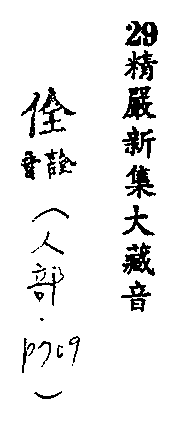 29精嚴新集大藏音
佺詮音(人部.p709)